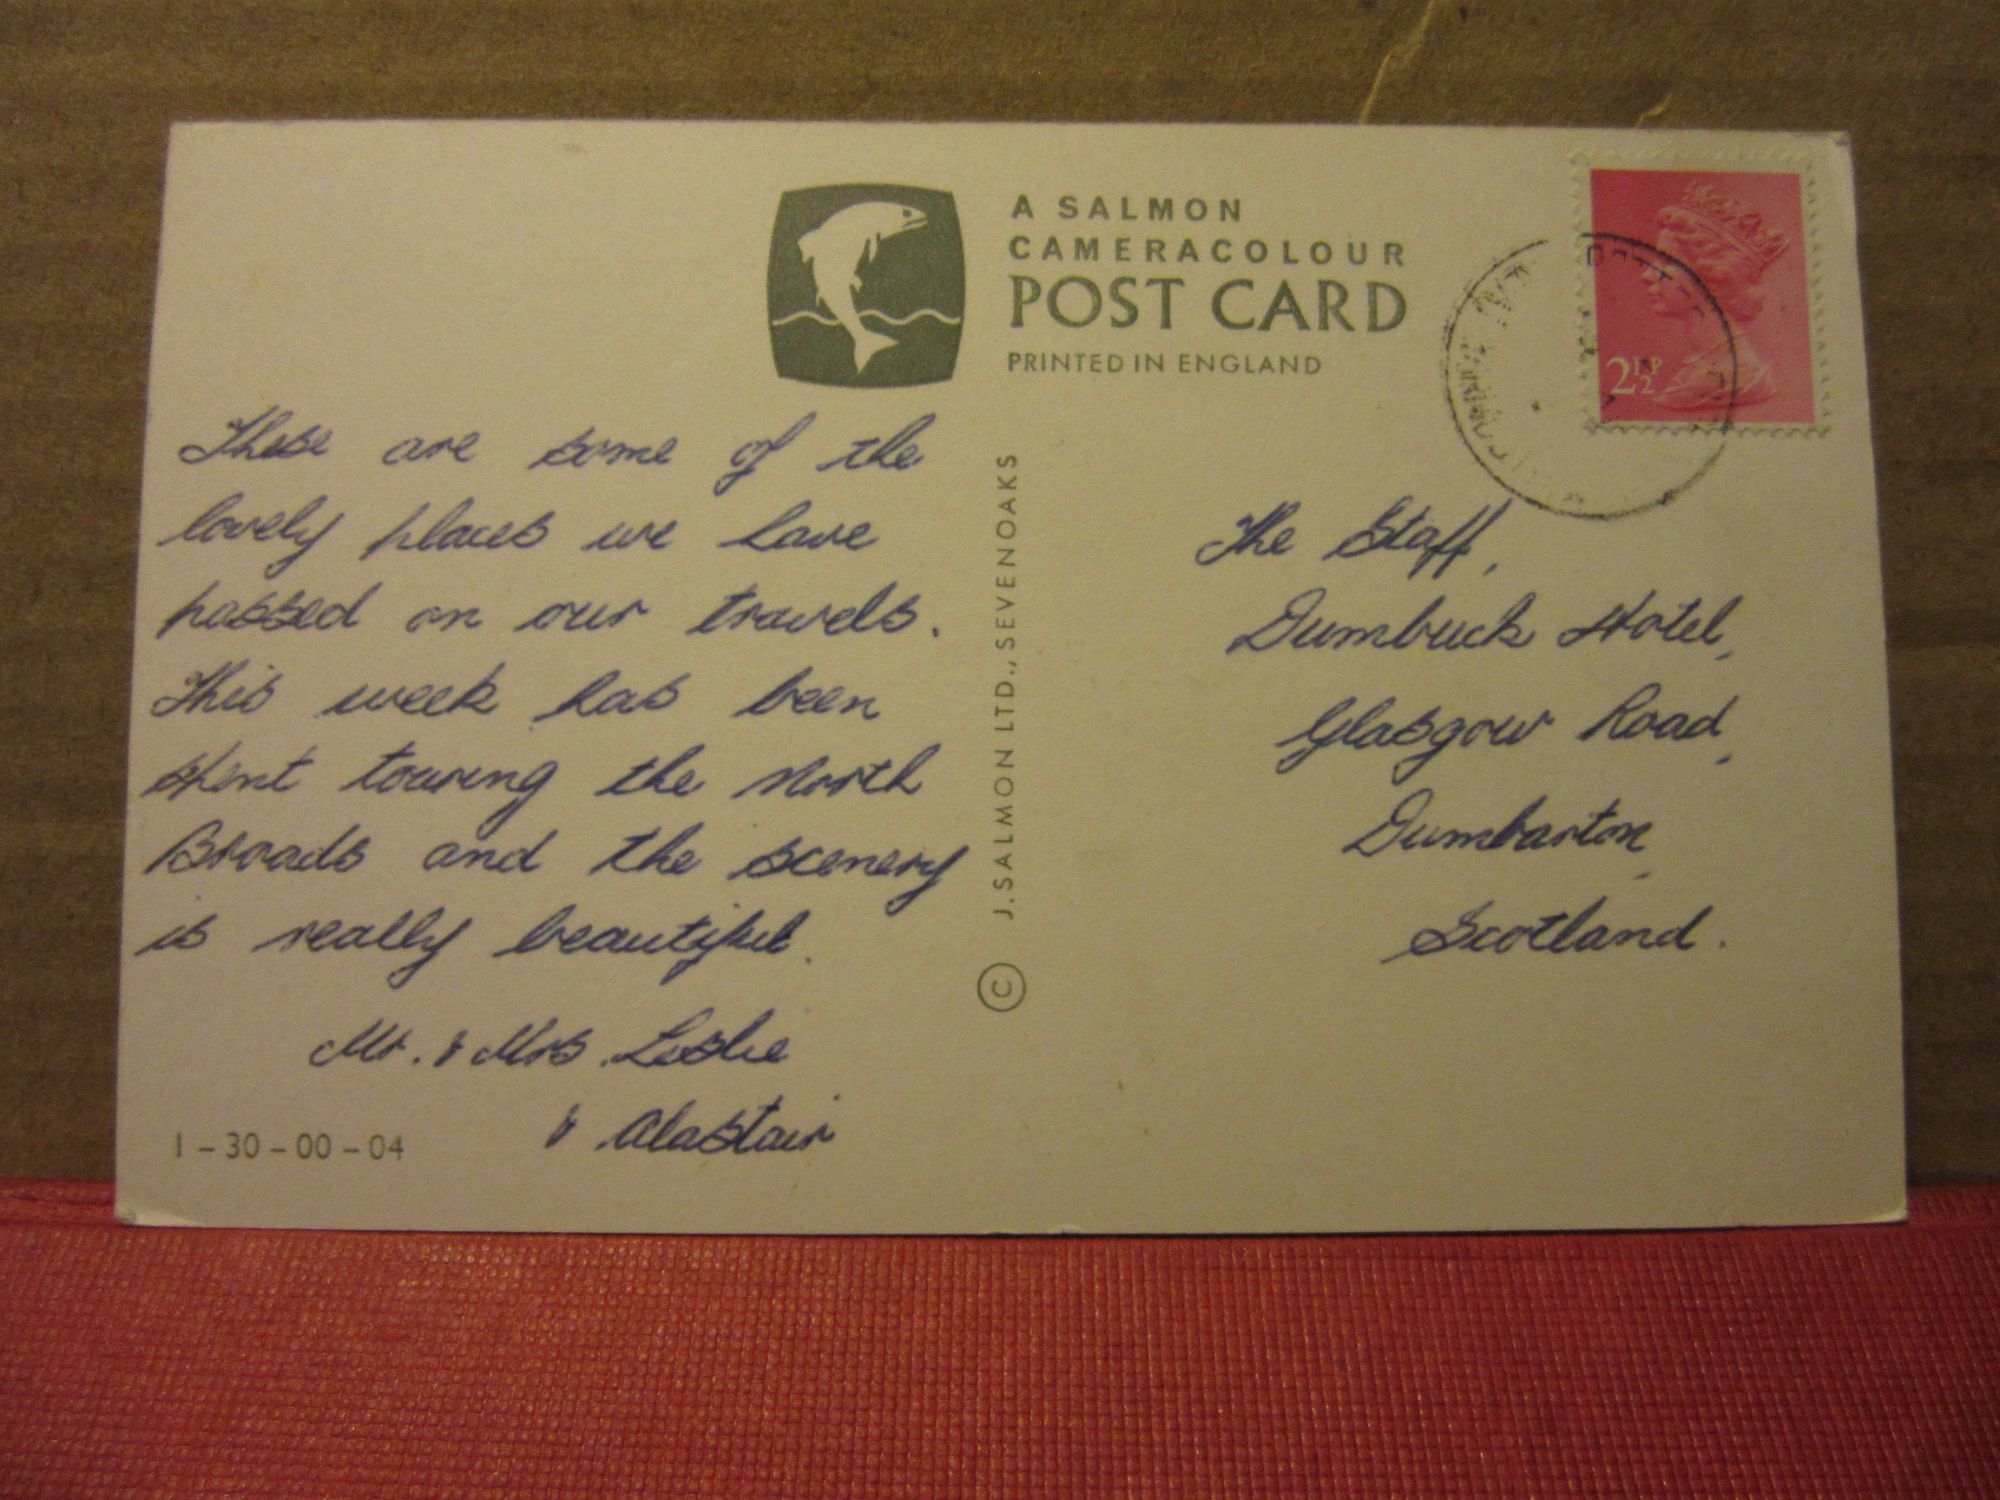 A SALMON
CAMERACOLOUR
POST CARD
PRINTED IN ENGLAND
2½P
These are some of the
lovely places we have
passed on our travels.
This week has been
spent touring the North
Broads and the scenery
is really beautiful.
Mr. & Mrs. Leslie
& Alastair
1-30-00-04
© J. SALMON LTD., SEVENOAKS
The Staff,
Dumbuck Hotel,
Glasgow Road,
Dumbarton,
Scotland.